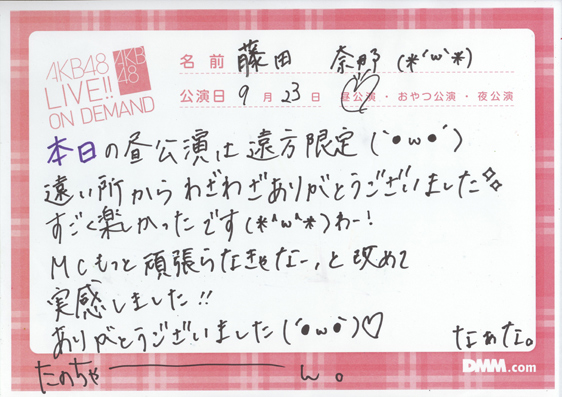 AKB48
LIVE!!
ON DEMAND
AKB
48
名前 藤田 奈那 (*´ω`*)
公演日 9月23日 昼公演・おやつ公演・夜公演
本日の昼公演は遠方限定(`●ω●´)
遠い所からわざわざありがとうございました
すごく楽しかったです(*^ω^*)わー!
MCもっと頑張らなきゃなー、と改めて
実感しました!!
ありがとうございました(´●ω●`)♡
なぁな。
DMM.com
たのちゃーーーん。